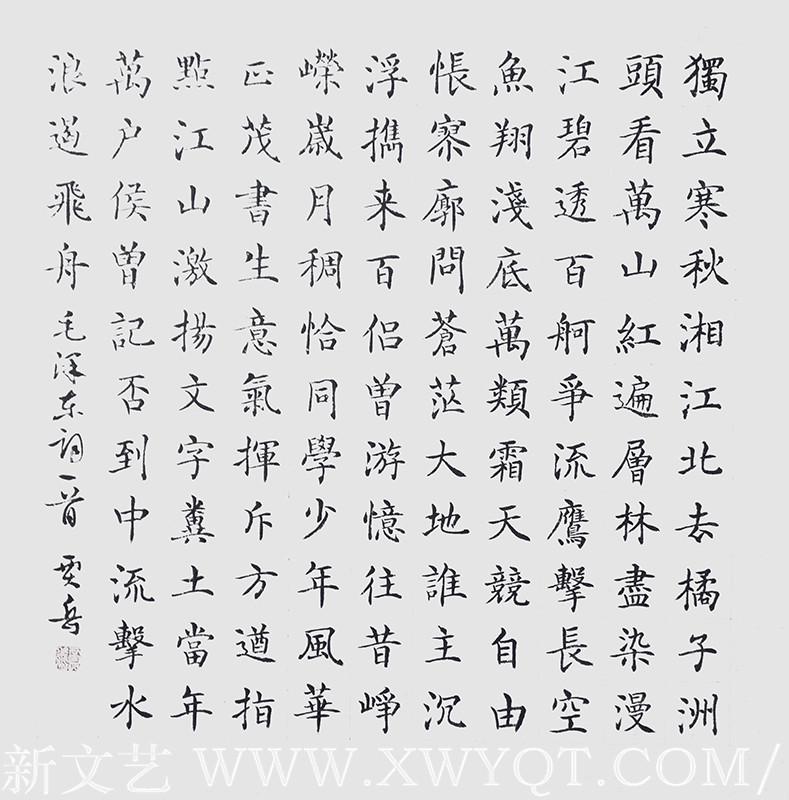 獨立寒秋湘江北去橘子洲
頭看萬山紅遍層林盡染漫
江碧透百舸爭流鷹擊長空
魚翔淺底萬類霜天競自由
悵寥廓問蒼茫大地誰主沉
浮擕来百侣曾游憶往昔崢
嶸歲月稠恰同學少年風華
正茂書生意氣揮斥方遒指
點江山激揚文字糞土當年
萬户侯曾記否到中流擊水
浪遏飛舟 毛泽东词一首
新文艺 WWW.XWYQT.COM/